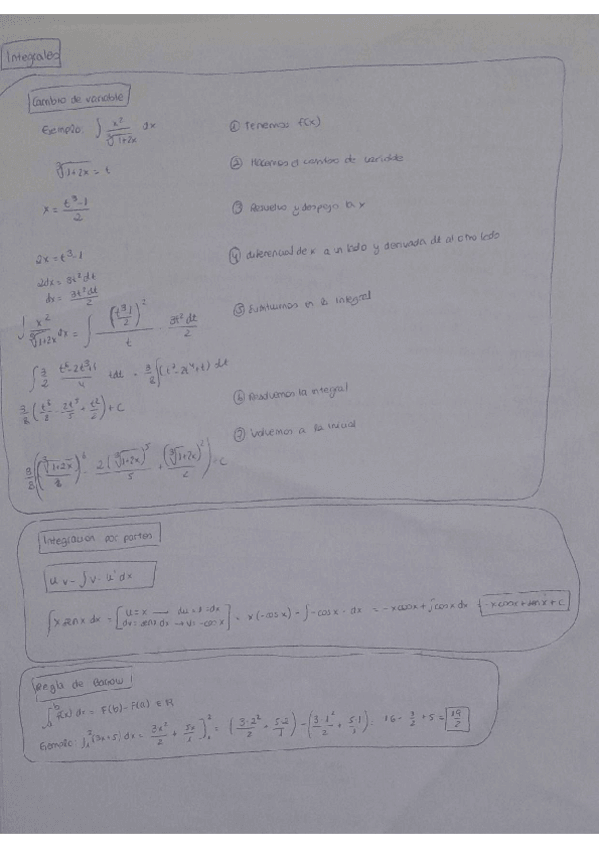 Integrales
Cambio de variable
Ejemplo: ∫ x²/∛(1+2x) dx ① Tenemos f(x)
∛(1+2x) = t ② Hacemos el cambio de variable
x = (t³-1)/2 ③ Resuelvo y despejo la x
2x = t³-1 ④ diferencial de x a un lado y derivada dt al otro lado
2dx = 3t² dt
dx = 3t² dt/2
∫ x²/∛(1+2x) dx = ∫ ((t³-1)/2)²/t · 3t² dt/2 ⑤ Sustituimos en la integral
∫ 3/2 (t⁶-2t³+1)/4 t dt = 3/8 ∫(t⁷-2t⁴+t) dt
⑥ Resolvemos la integral
3/8 (t⁸/8 - 2t⁵/5 + t²/2) + C
⑦ Volvemos a la inicial
3/8 ((∛(1+2x))⁸/8 - 2(∛(1+2x))⁵/5 + (∛(1+2x))²/2) + C
Integración por partes
u·v - ∫v·u' dx
∫x sen x dx = [u = x → du = 1·dx
dv = senx dx → v = -cos x] = x(-cosx) - ∫-cosx · dx = -x cosx + ∫cosx dx = -x cosx + sen x + C
Regla de Barrow
∫ₐᵇ f(x) dx = F(b) - F(a) ∈ R
Ejemplo: ∫₁² (3x+5) dx = 3x²/2 + 5x/1 ]₁² = (3·2²/2 + 5·2/1) - (3·1²/2 + 5·1/1) = 16 - 3/2 + 5 = 19/2